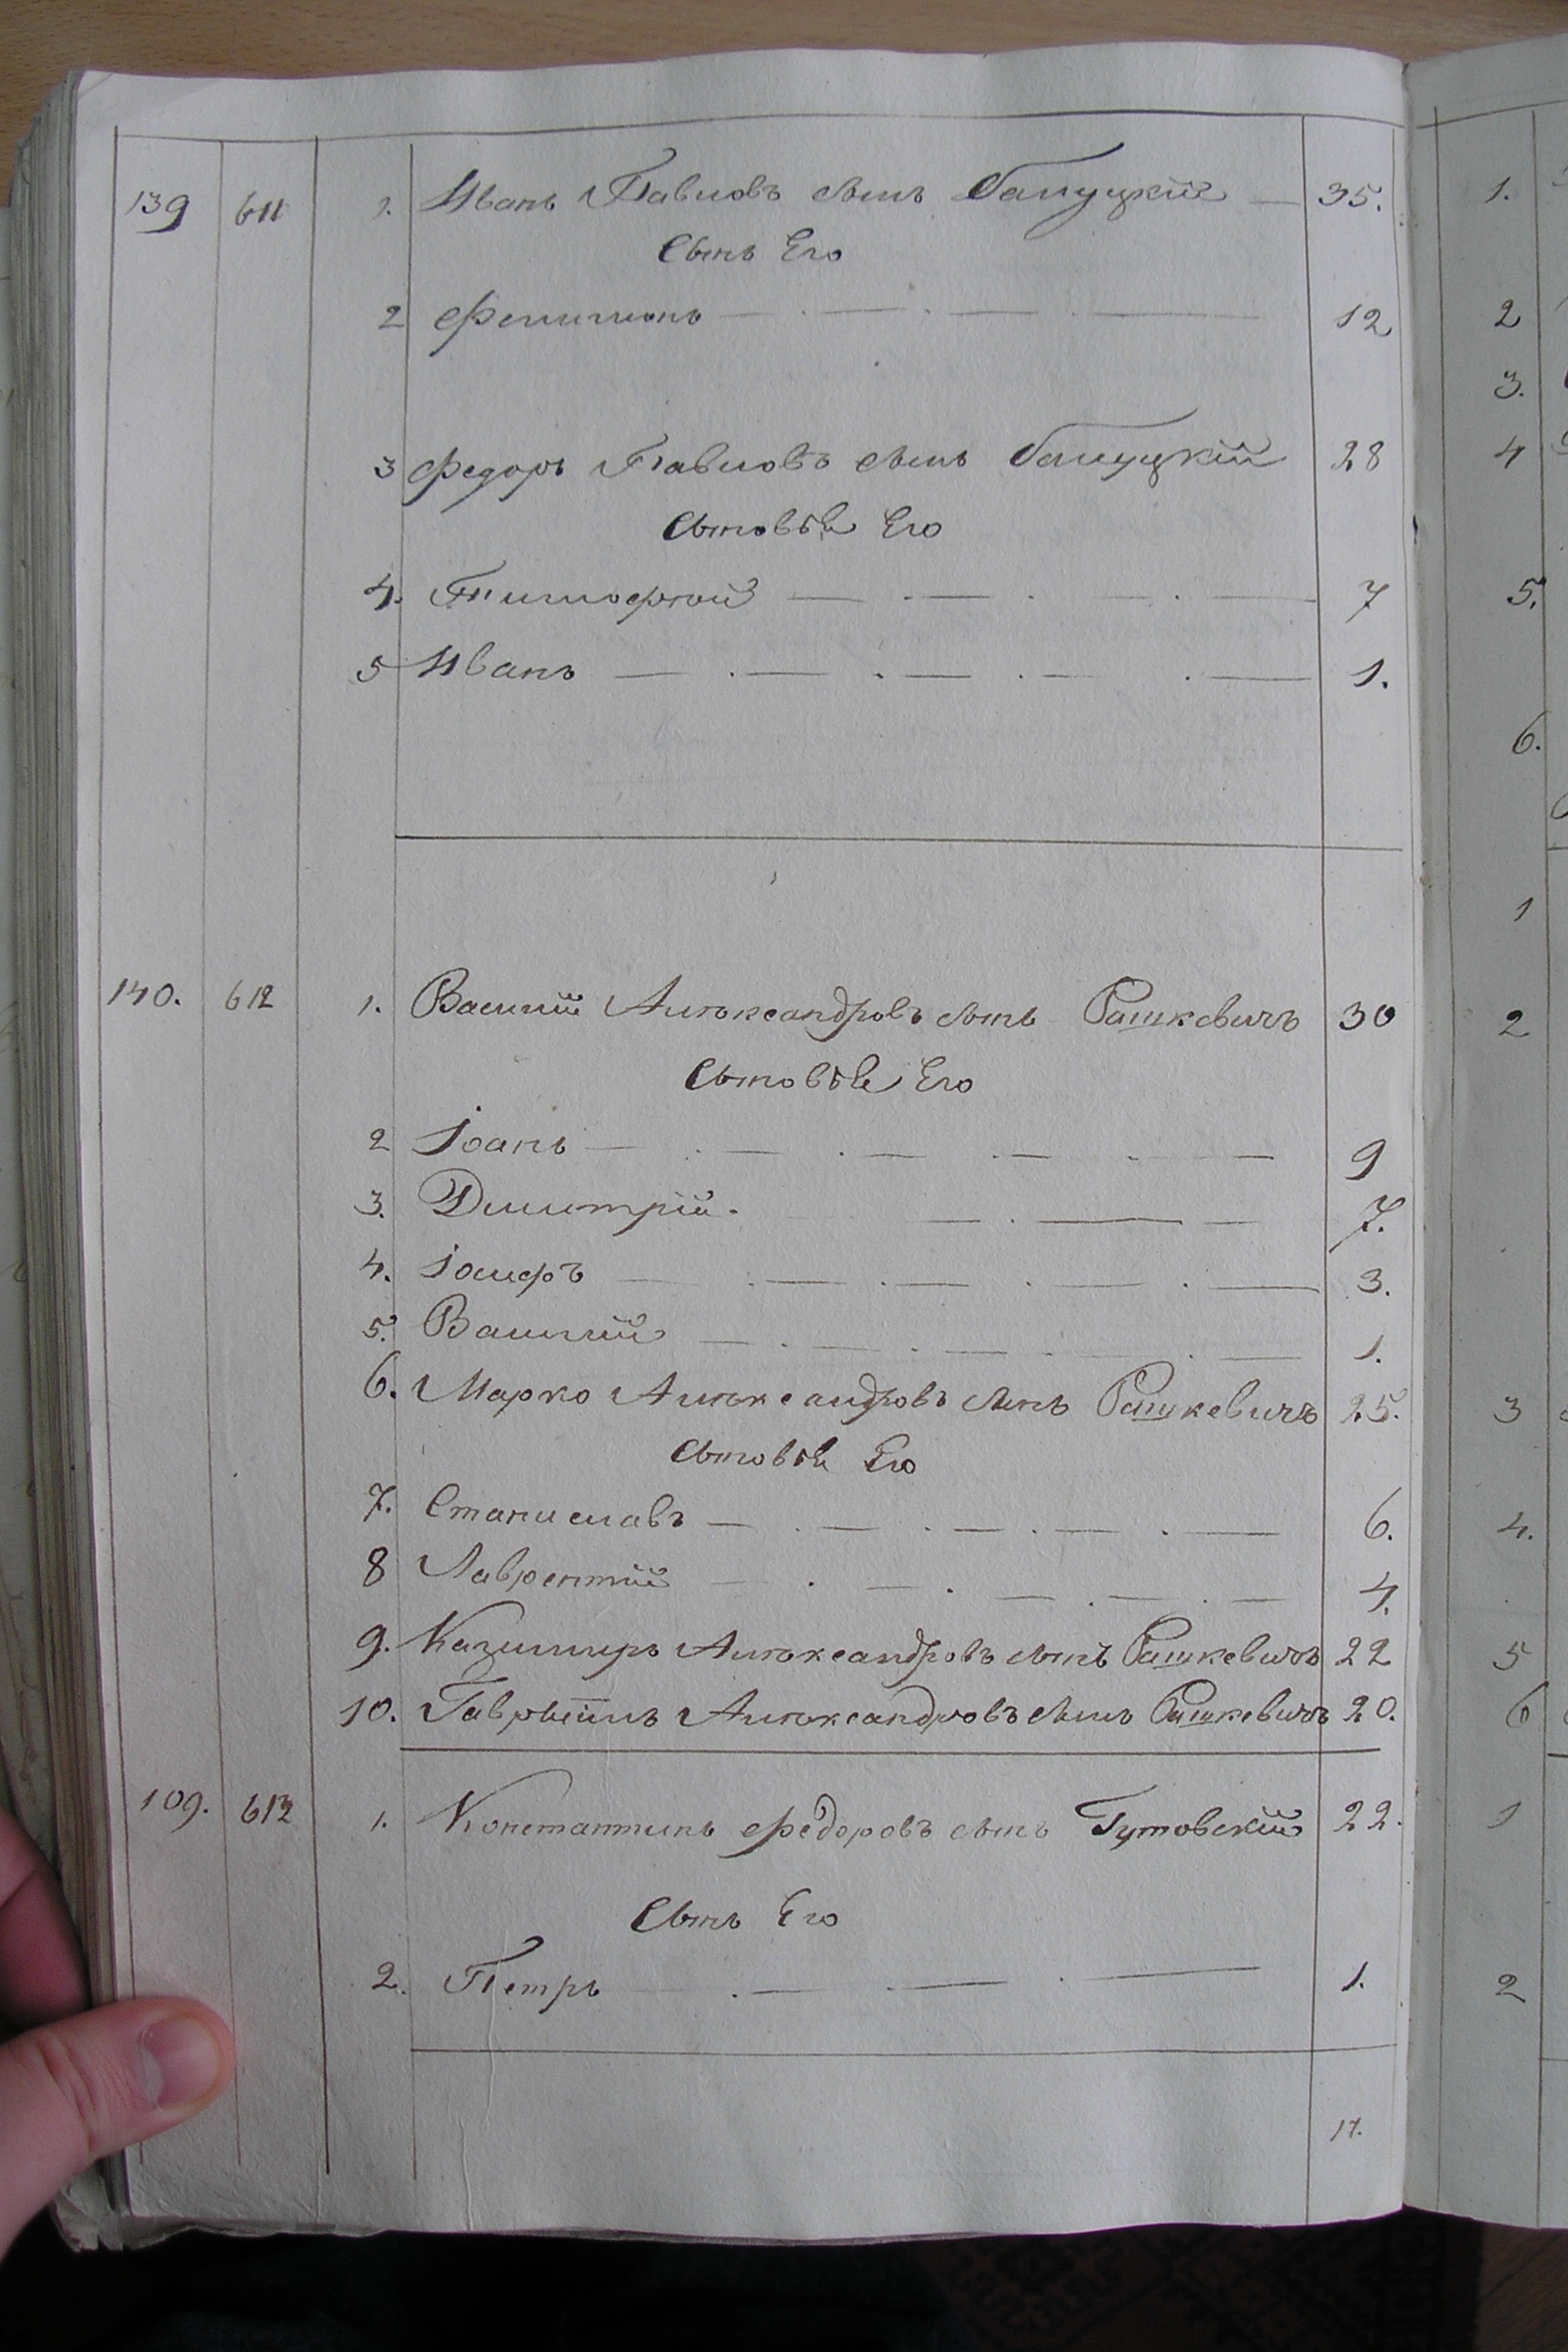 139 611 1. Иванъ Павловъ сынъ Балуцкій — 35.
Сынъ Его
2 Филимонъ — . — . — . — 12
3 Федоръ Павловъ сынъ Балуцкій 28
Сыновѣя Его
4. Тимофѣй — . — . — . — 7
5 Иванъ — . — . — . — . — 1.
140. 612 1. Василій Алѣксандровъ сынъ Рашкевичъ 30
Сыновѣя Его
2 Іоанъ — . — . — . — . — 9
3. Димитрій. — . — — 7.
4. Іосифъ — . — . — . — . — 3.
5. Василій — . — . — . — . — 1.
6. Марко Алѣксандровъ сынъ Рашкевичъ 25.
Сыновѣя Его
7. Станиславъ — . — . — . — . — 6.
8 Лаврентій — . — . — . — . — 4.
9. Казимиръ Алѣксандровъ сынъ Рашкевичъ 22
10. Гаврыіилъ Алѣксандровъ сынъ Рашкевичъ 20.
109. 613 1. Константинъ Федоровъ сынъ Гутовскій 22.
Сынъ Его
2. Петръ . — — . — 1.
17.
1.
2
3.
4
5.
6.
1
2
3
4.
5
6
1
2